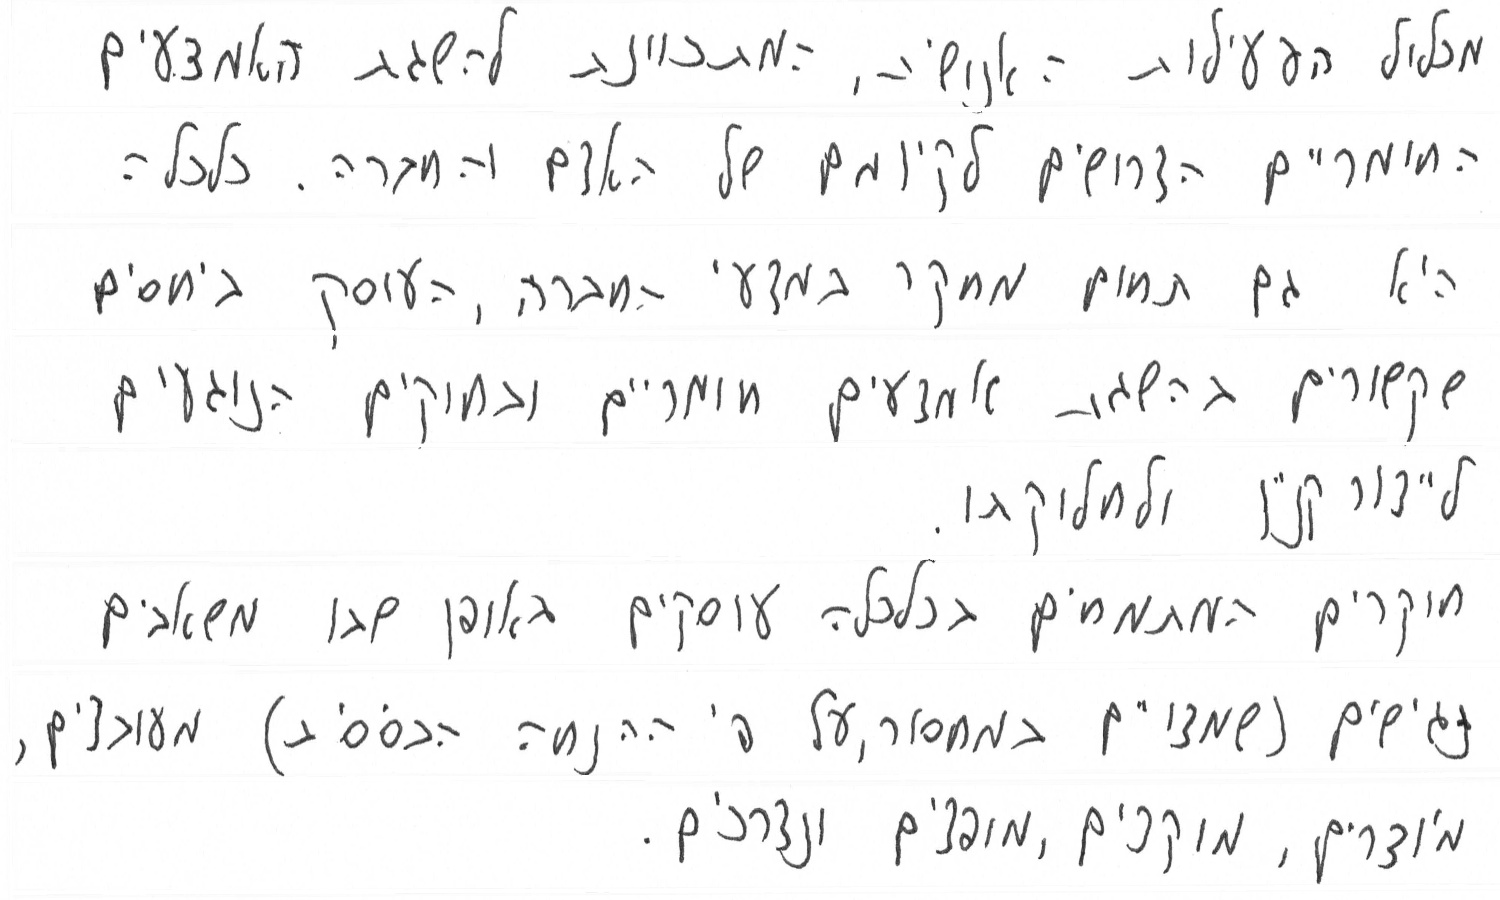 מכלול הפעילות האנושית, המתכוונת להשגת האמצעים
החומריים הדרושים לקיומם של האדם והחברה. כלכלה
היא גם תחום מחקר במדעי החברה, העוסק ביחסים
שקשורים בהשגת אמצעים חומריים ובחוקים הנוגעים
לייצור קניין ולחלוקתו.
חוקרים המתמחים בכלכלה עוסקים באופן שבו משאבים
נגישים (שמצויים במחסור, על פי ההנחה הבסיסית) מעובדים,
מיוצרים, מוקצים, מופצים ונצרכים.